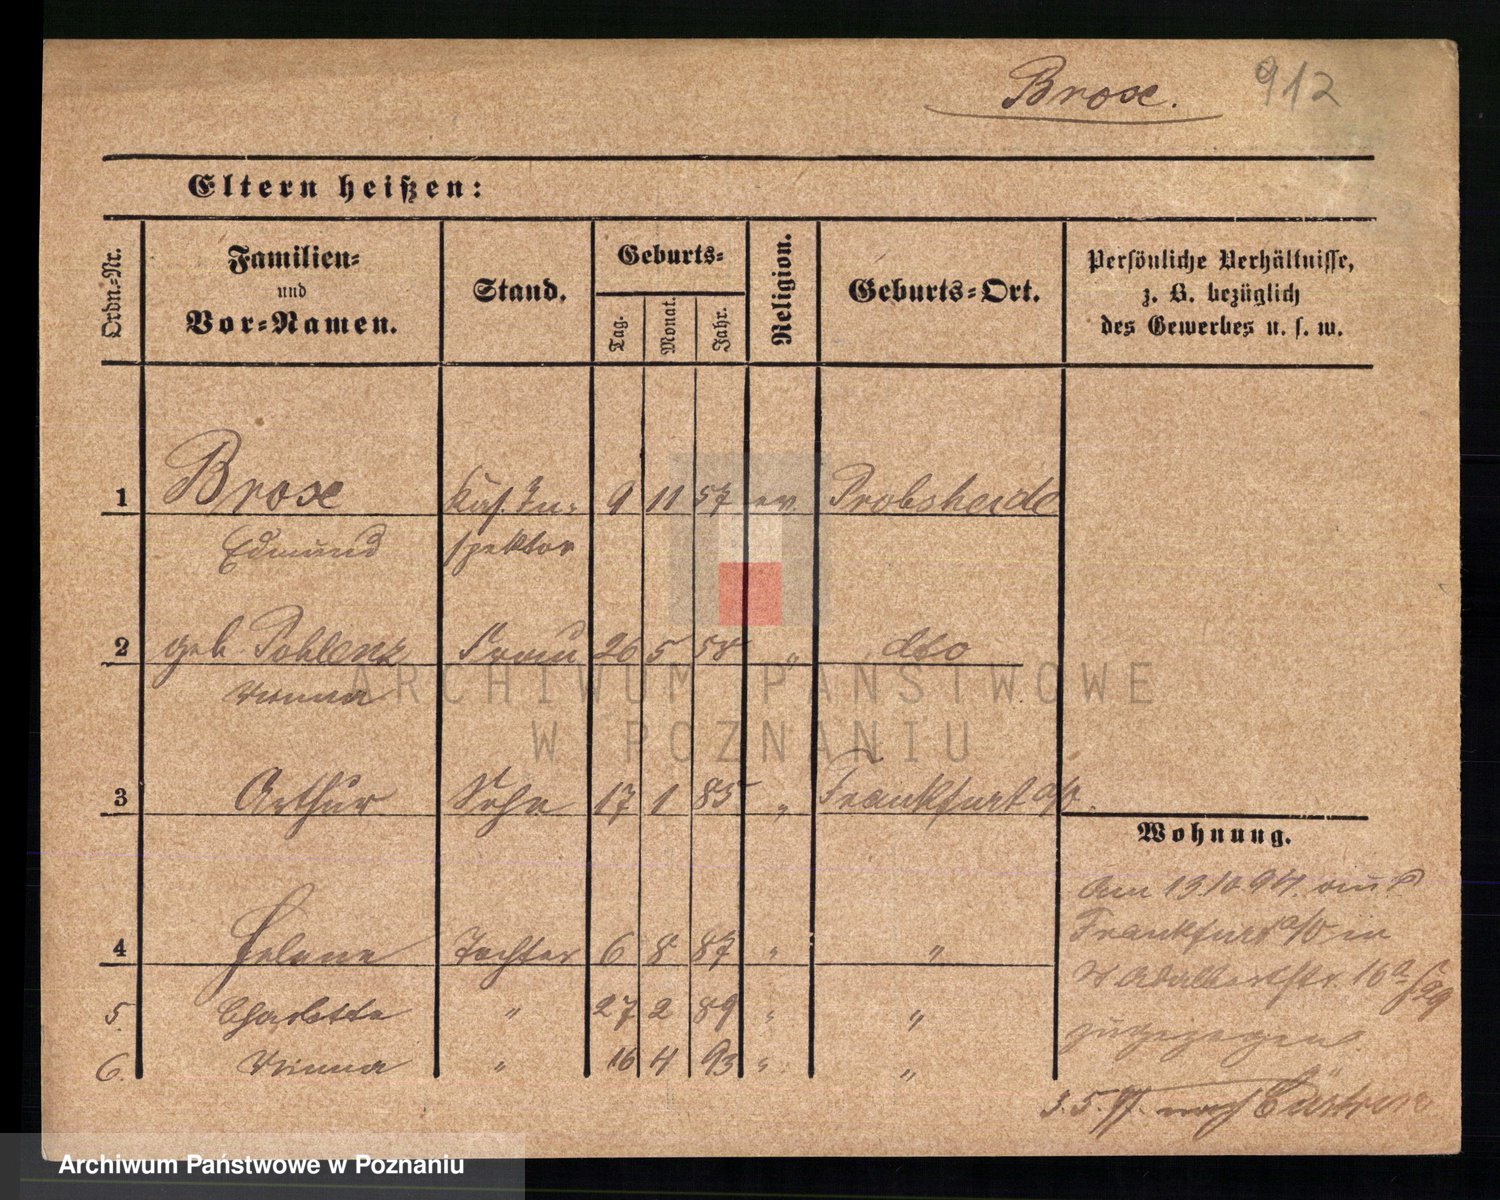 Brose. 912
Eltern heißen:
Ordn.-Nr.
Familien-
und
Vor-Namen.
Stand.
Geburts-
Tag.
Monat.
Jahr.
Religion.
Geburts-Ort.
Persönliche Verhältnisse,
z. B. bezüglich
des Gewerbes u. s. w.
1 Brose Kas. In- 9 11 57 ev. Probsheide
Edmund spektor
2 geb. Pohlenz Frau 26 5 58 " dto
Minna
3 Arthur Sohn 17 1 85 " Frankfurt a/O.
Wohnung.
Am 13.10.94. aus
Frankfurt a/O in
Adalbertstr. 16a
zugezogen
4 Helene Tochter 6 8 87 " "
5. Charlotte " 27 2 89 " "
6. Minna " 16 4 93 " "
3.5.97. nach Cüstrin
ARCHIWUM PAŃSTWOWE
W POZNANIU
Archiwum Państwowe w Poznaniu